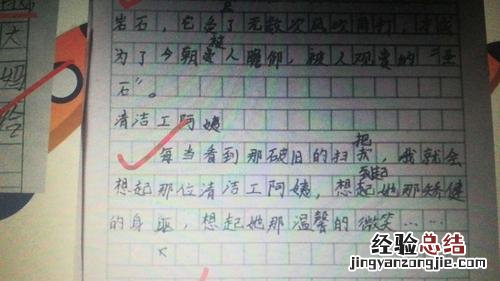 岩石，它受了无数次风吹雨打，才成
为了今朝被人瞻仰，被人观赏的“怪
石”。
清洁工阿姨
每当看到那破旧的扫把，我就会
想起那位清洁工阿姨，想起她那矫健
的身躯，想起她那温馨的微笑……
经验总结
jingyanzongjie.com